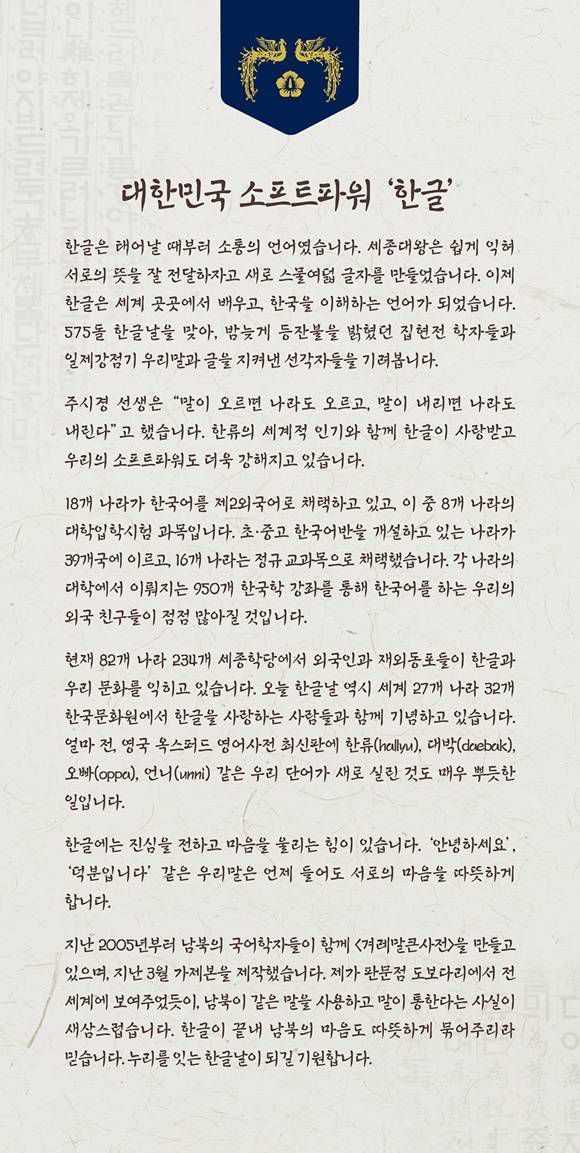 대한민국 소프트파워 ‘한글’
한글은 태어날 때부터 소통의 언어였습니다. 세종대왕은 쉽게 익혀
서로의 뜻을 잘 전달하자고 새로 스물여덟 글자를 만들었습니다. 이제
한글은 세계 곳곳에서 배우고, 한국을 이해하는 언어가 되었습니다.
575돌 한글날을 맞아, 밤늦게 등잔불을 밝혔던 집현전 학자들과
일제강점기 우리말과 글을 지켜낸 선각자들을 기려봅니다.
주시경 선생은 “말이 오르면 나라도 오르고, 말이 내리면 나라도
내린다”고 했습니다. 한류의 세계적 인기와 함께 한글이 사랑받고
우리의 소프트파워도 더욱 강해지고 있습니다.
18개 나라가 한국어를 제2외국어로 채택하고 있고, 이 중 8개 나라의
대학입학시험 과목입니다. 초·중고 한국어반을 개설하고 있는 나라가
39개국에 이르고, 16개 나라는 정규 교과목으로 채택했습니다. 각 나라의
대학에서 이뤄지는 950개 한국학 강좌를 통해 한국어를 하는 우리의
외국 친구들이 점점 많아질 것입니다.
현재 82개 나라 234개 세종학당에서 외국인과 재외동포들이 한글과
우리 문화를 익히고 있습니다. 오늘 한글날 역시 세계 27개 나라 32개
한국문화원에서 한글을 사랑하는 사람들과 함께 기념하고 있습니다.
얼마 전, 영국 옥스퍼드 영어사전 최신판에 한류(hallyu), 대박(daebak),
오빠(oppa), 언니(unni) 같은 우리 단어가 새로 실린 것도 매우 뿌듯한
일입니다.
한글에는 진심을 전하고 마음을 울리는 힘이 있습니다. ‘안녕하세요’,
‘덕분입니다’ 같은 우리말은 언제 들어도 서로의 마음을 따뜻하게
합니다.
지난 2005년부터 남북의 국어학자들이 함께 <겨레말큰사전>을 만들고
있으며, 지난 3월 가제본을 제작했습니다. 제가 판문점 도보다리에서 전
세계에 보여주었듯이, 남북이 같은 말을 사용하고 말이 통한다는 사실이
새삼스럽습니다. 한글이 끝내 남북의 마음도 따뜻하게 묶어주리라
믿습니다. 누리를 잇는 한글날이 되길 기원합니다.